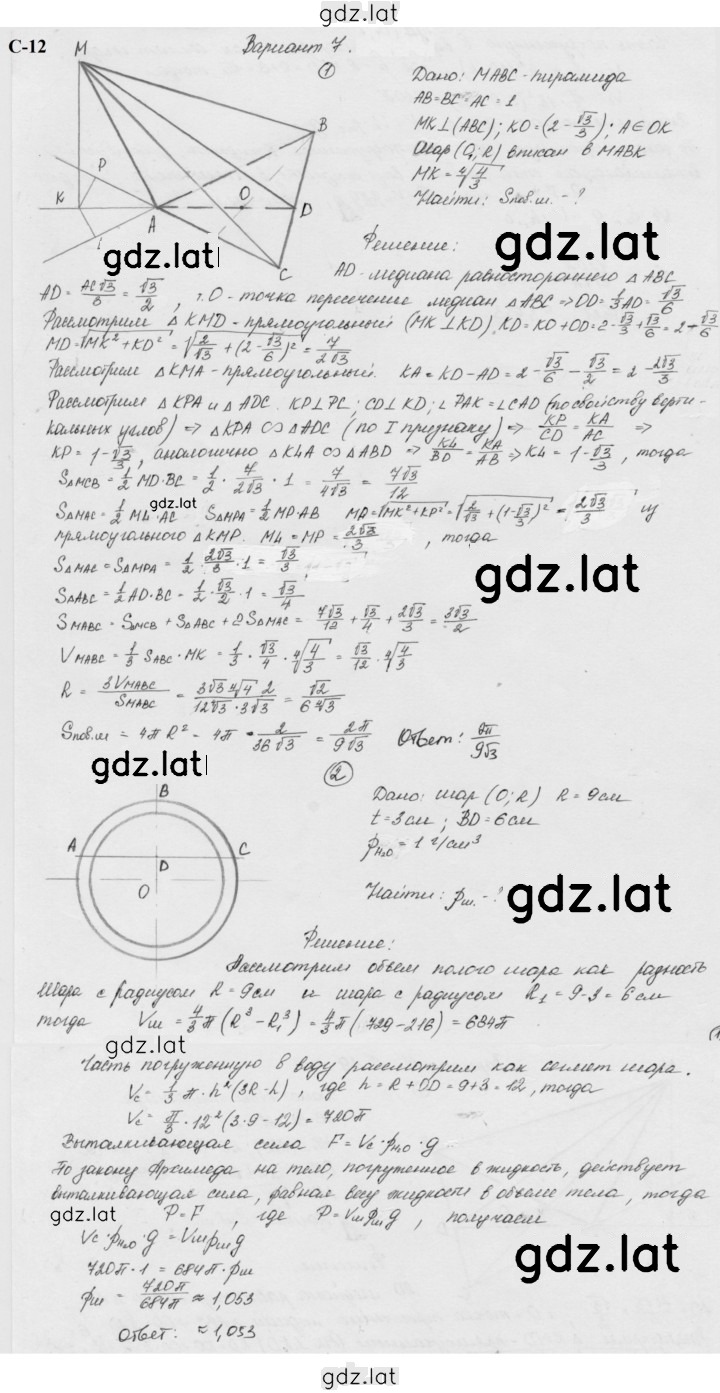 gdz.lat
С-12
Вариант 7.
M
1
Дано: MABC - пирамида
AB=BC=AC=1
MK⊥(ABC); KO=(2-√3/3); A∈OK
Шар (O; R) вписан в MABK
MK=∜(4/3)
Найти: Sпов.ш. - ?
B
P
K
A
O
D
C
gdz.lat
gdz.lat
Решение:
AD - медиана равностороннего △ABC
AD = AC√3/3 = √3/2 , т.O - точка пересечение медиан △ABC ⇒ OD = 1/3 AD = √3/6
Рассмотрим △KMD - прямоугольный (MK⊥KD) KD = KO+OD = 2-√3/3+√3/6 = 2-√3/6
MD=√(MK²+KD²) = √(2/√3 + (2-√3/6)²) = 7/2√3
Рассмотрим △KMA - прямоугольный. KA = KD-AD = 2-√3/6-√3/2 = 2-2√3/3
Рассмотрим △KPA и △ADC. KP⊥PC; CD⊥KD; ∠PAK=∠CAD (по свойству верти-
кальных углов) ⇒ △KPA ∽ △ADC (по I признаку) ⇒ KP/CD = KA/AC ⇒
KP = 1-√3/3, аналогично △K4A ∽ △ABD ⇒ K4/BD = KA/AB ⇒ K4 = 1-√3/3, тогда
S△MCB = 1/2 MD·BC = 1/2 · 7/2√3 · 1 = 7/4√3 = 7√3/12
gdz.lat
S△MAC = 1/2 M4·AC S△MPA = 1/2 MP·AB MP=√(MK²+KP²) = √(2/√3 + (1-√3/3)²) = 2√3/3 из
прямоугольного △KMP. M4 = MP = 2√3/3 , тогда
S△MAC = S△MPA = 1/2 · 2√3/3 · 1 = √3/3
gdz.lat
S△ABC = 1/2 AD·BC = 1/2 · √3/2 · 1 = √3/4
SMABC = S△MCB + S△ABC + 2S△MAC = 7√3/12 + √3/4 + 2√3/3 = 3√3/2
VMABC = 1/3 SABC · MK = 1/3 · √3/4 · ∜(4/3) = √3/12 · ∜(4/3)
R = 3VMABC/SMABC = 3√3 ∜4 · 2/12∜3 · 3√3 = √2/6∜3
Sпов.ш = 4πR² = 4π · 2/36√3 = 2π/9√3 Ответ: 2π/9√3
gdz.lat
2
B
A
C
D
O
Дано: шар (O; R) R = 9см
t = 3см ; BD = 6см
ρH₂O = 1 г/см³
Найти: ρш. - ?
gdz.lat
Решение:
Рассмотрим объем полого шара как разность
шара с радиусом R = 9см и шара с радиусом R₁ = 9-3 = 6см
тогда Vш = 4/3 π (R³-R₁³) = 4/3 π (729-216) = 684π
gdz.lat
Часть погруженную в воду рассмотрим как сегмент шара.
Vc = 1/3 π·h²(3R-h) , где h = R+OD = 9+3 = 12, тогда
Vc = π/3 · 12²(3·9-12) = 720π
Выталкивающая сила F = Vc·ρH₂O·g
По закону Архимеда на тело, погруженное в жидкость, действует
выталкивающая сила, равная весу жидкости в объеме тела, тогда
gdz.lat
P=F , где P=Vшρшg , получаем
Vc·ρH₂O·g = Vшρшg
gdz.lat
720π·1 = 684π·ρш
ρш = 720π/684π ≈ 1,053
Ответ: ≈ 1,053
gdz.lat
gdz.lat